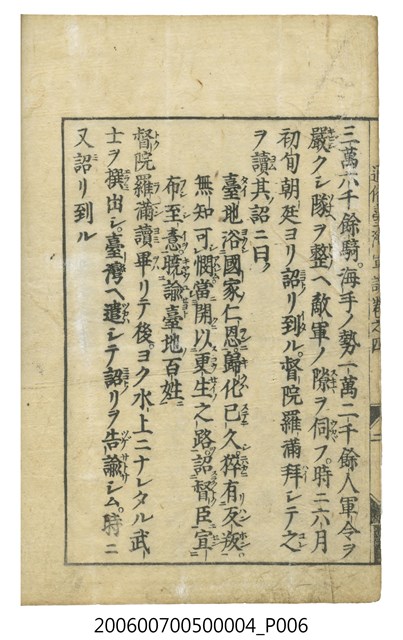 三萬六千餘騎。海手ノ勢一萬二千餘人軍令ヲ
嚴クシ隊ヲ整ヘ敵軍ノ隙ヲ伺フ。時ニ六月
初旬朝廷ヨリ詔リ到ル。督院羅滿拜シテ之
ヲ讀其詔ニ曰ク
臺地浴國家仁恩歸化已久猝有反叛
無知可憫當開以更生之路。詔督臣宣
布至意曉諭臺地百姓
督院羅滿讀畢リテ後。ヨク水上ニナレタル武
士ヲ撰出シ。臺灣ヘ遣シテ詔リヲ告諭シム。時ニ
又詔リ到ル
200600700500004_P006